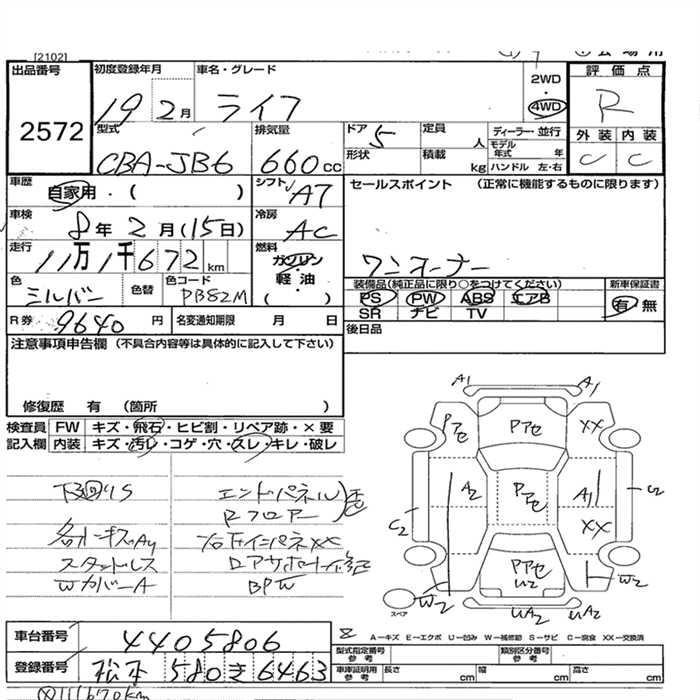 [2102]
出品番号
2572
初度登録年月
19 2月
車名・グレード
ライフ
2WD
4WD
評価点
R
外装 内装
C C
型式
CBA-JB6
排気量
660cc
ドア 5
形状
定員 人
積載 kg
ディーラー・並行
モデル年式 年
ハンドル 左・右
車歴
自家用・( )
シフト
A7
セールスポイント (正常に機能するものに限ります)
ワンオーナー
車検
8年2月(15日)
冷房
AC
走行
11万1千672km
燃料
ガソリン
軽油
( )
色
シルバー
色替
色コード
装備品(純正品に限り○をつけてください)
PS PW ABS エアB
SR ナビ TV
新車保証書
有 無
R券 9640円
名変通知期限 月 日
後日品
注意事項申告欄 (不具合内容等は具体的に記入して下さい)
修復歴 有 (箇所 )
検査員記入欄
FW キズ・飛石・ヒビ割・リペア跡・×要
内装 キズ・汚レ・コゲ・穴・スレ・キレ・破レ
下回りS
エンドパネル
Rフロアー
スタッドレス
WカバーA
A1 A1
Pアセ Pアセ XX
A2 Pアセ A1
C2 XX C2
Pアセ U2
W2 W2
UA2 UA2
スペア
A-キズ E-エクボ U-凹み W-補修跡 S-サビ C-腐食 XX-交換済
車台番号
4405806
登録番号
松本 580 き 6463
型式指定番号 参考
類別区分番号 参考
車庫証明用 参考
長さ cm
幅 cm
高さ cm
111670km